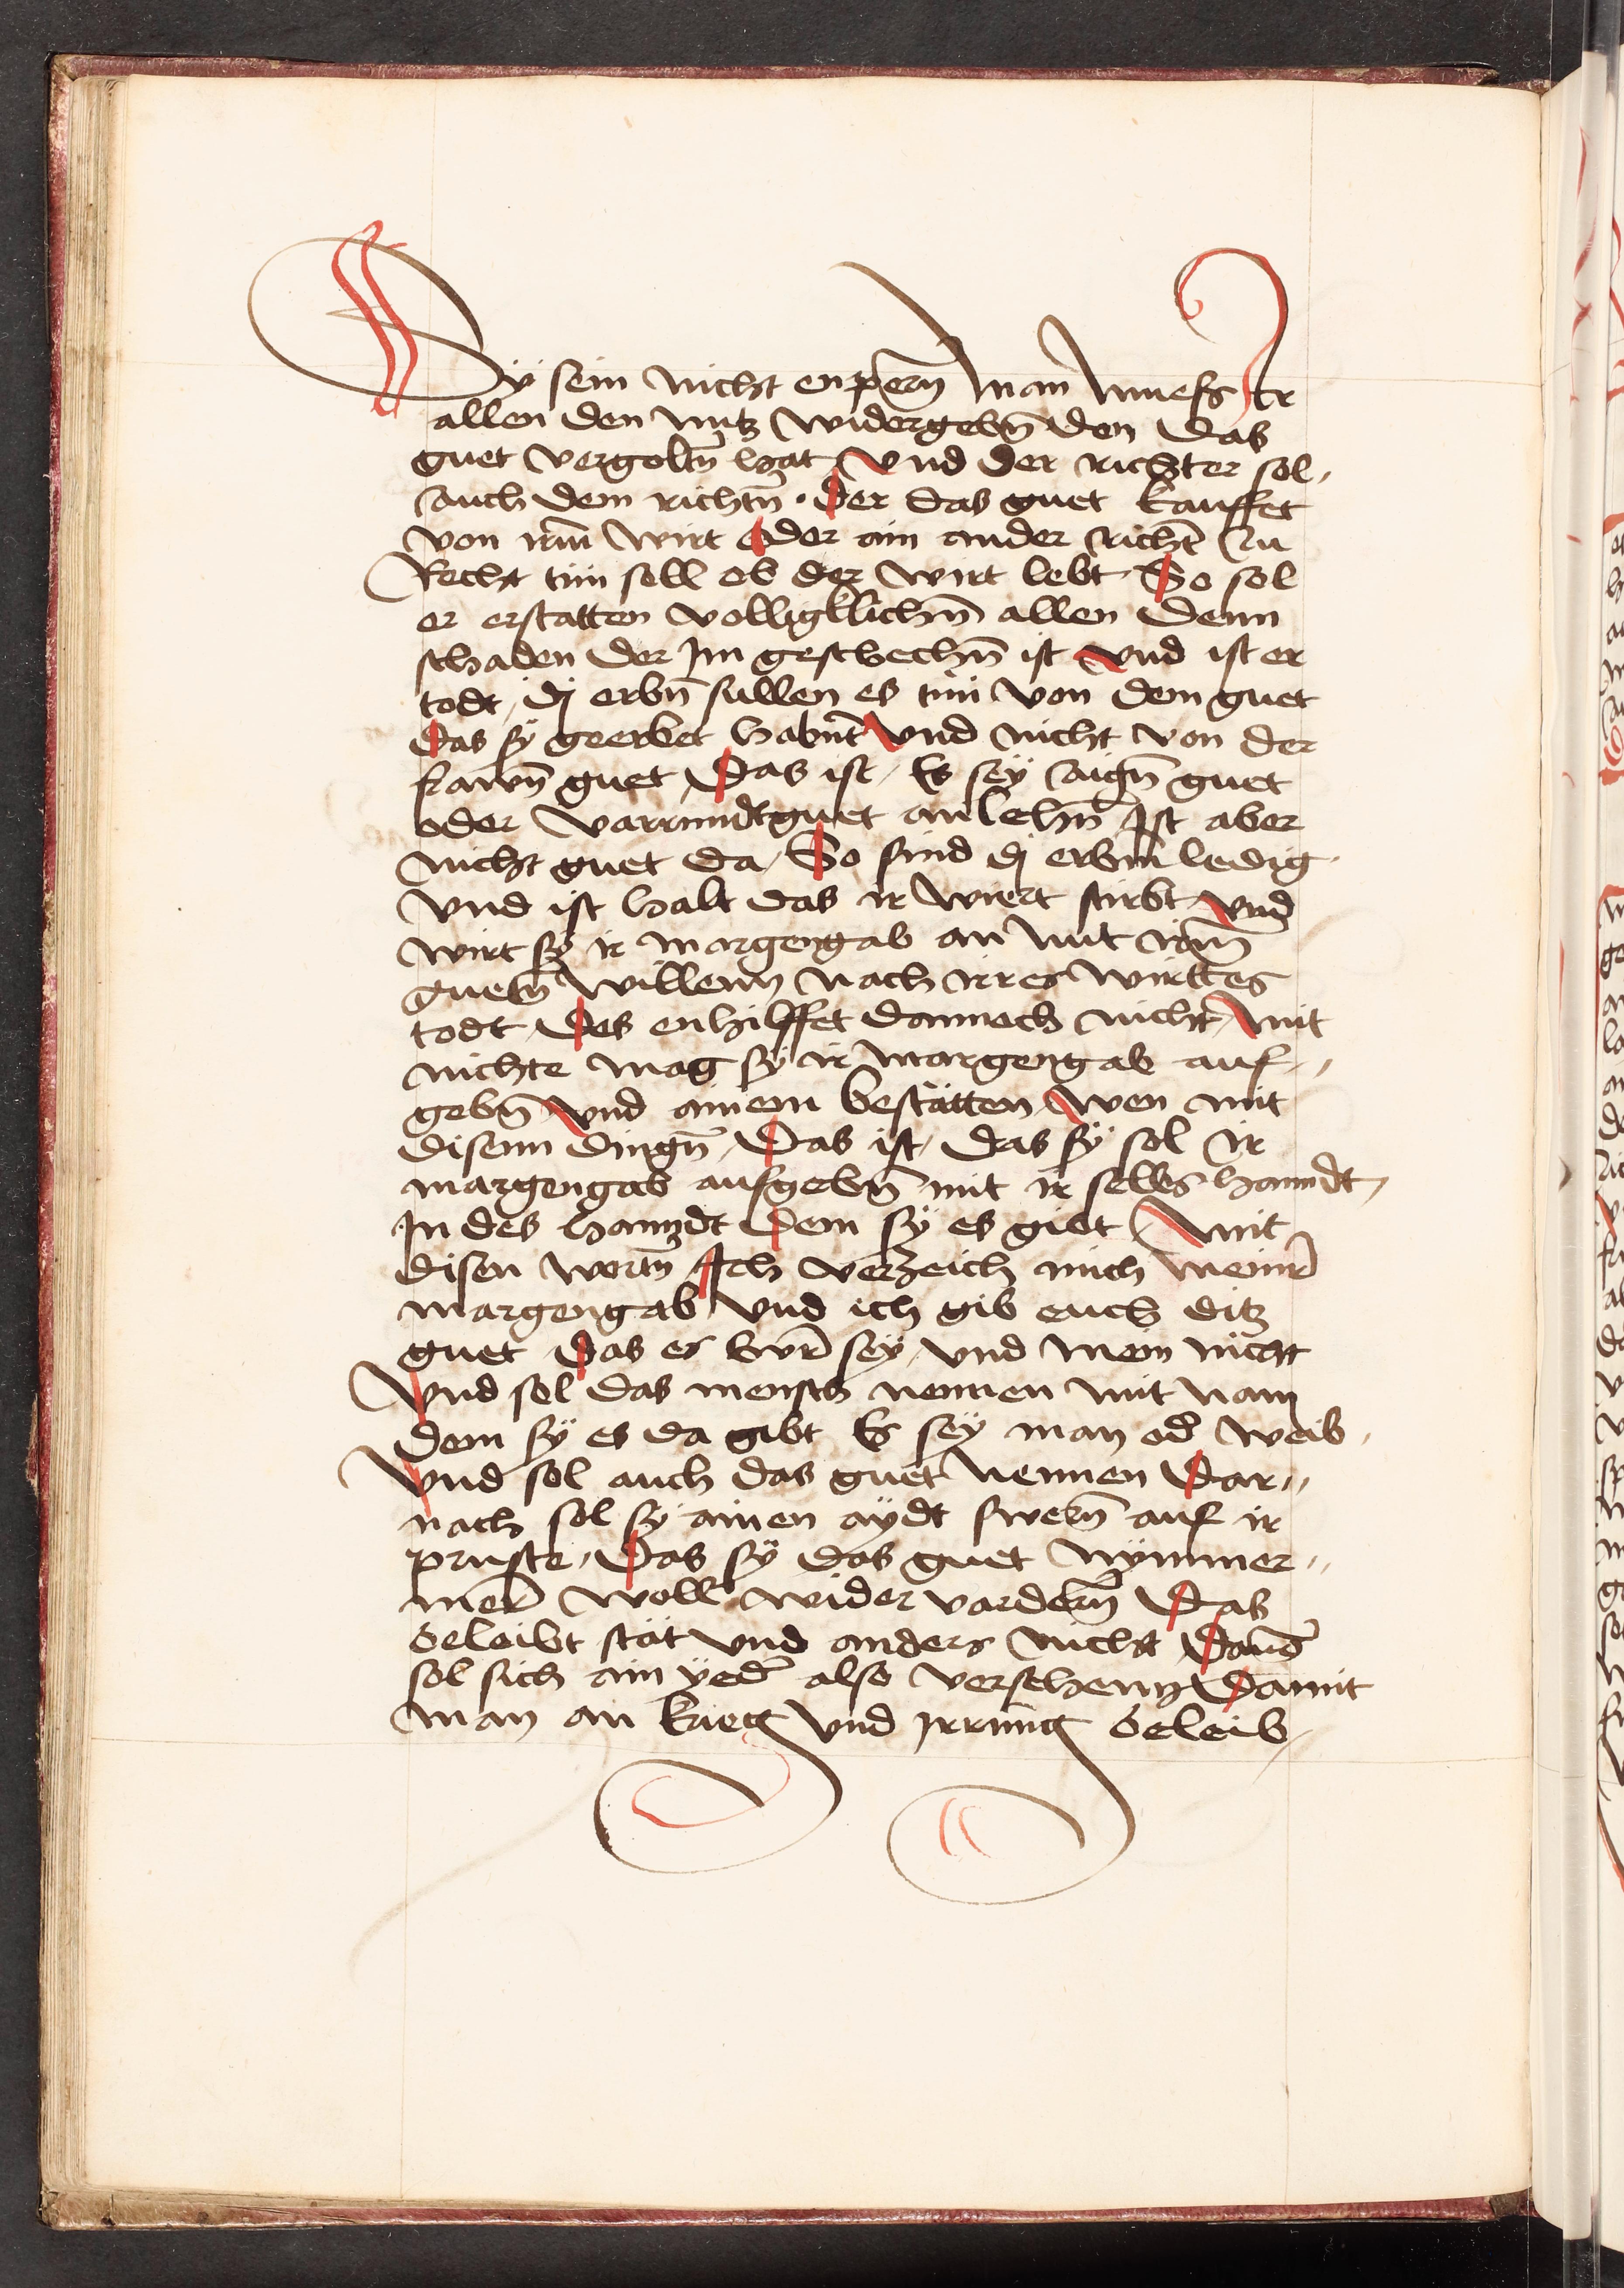 Sÿ sein nicht enpern̄ man muess Ir
allen den nutz widergebn̄ den das
guet vergoltn̄ hat vnd der richter sol
auch dem richtn̄ · der das guet kauffet
von irm̄ wirt oder ain ander richt̄ zu
Recht tun soll ob der wirt lebt So sol
er erstatten volligkllichn̄ allen denn
schaden der Im geschechn̄ ist vnd ist er
todt, dj erbn̄ sullen es tun von dem guet
das sÿ geerbet habn̄t vnd nicht von der
frawn̄ guet, Das ist, Es seÿ aign̄ guet
oder varrundtguet an lehn̄ Ist aber
nicht guet da, So sind dj erbm̄ ledig
vnd ist halt das ir wiert stirbt vnd
wirt sÿ ir margengab an mit irm̄
guetn̄ willenn nach irres wirttes
todt, des enhilffet dannoch nicht, mit
nichte mag sÿ ir margengab auf,,
gebn̄ vnd ainem bestätten wen mit
disenn dingn̄, Das ist, das sÿ sol ir
margengab aufgebn̄ mit ir selbs hanndt,
In des hanndt dem sÿ es giet mit
disen wortn̄ Ich verzeich mich meinr̄
margengab vnd ich gib euch ditz
guet das es ewr̄ seÿ, vnd mein nicht
Vnd sol das mensch nennen mit nam
dem sÿ es da gibt Es seÿ man od̄ weib,
Vnd sol auch das guet nennen Dar,,
nach sol sÿ ainen aÿdt swern̄ auf ir
pruste,, Das sÿ das guet nÿmmer,,
mer̄ woll wider vardern̄ Das
beleibt stät vnd anders nicht
sol sich ain ÿed̄ also versehenn Damit
man an krieg vnd Irrung beleib,